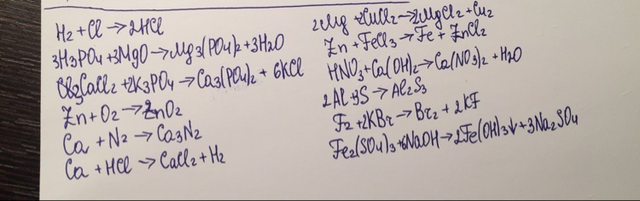 H₂+Cl→2HCl
3H₃PO₄+3MgO→Mg₃(PO₄)₂+3H₂O
3CaCl₂+2K₃PO₄→Ca₃(PO₄)₂+6KCl
Zn+O₂→2ZnO₂
Ca+N₂→Ca₃N₂
Ca+HCl→CaCl₂+H₂
2Mg+2CuCl₂→2MgCl₂+Cu₂
Zn+FeCl₃→Fe+ZnCl₂
HNO₃+Ca(OH)₂→Ca(NO₃)₂+H₂O
2Al+3S→Al₂S₃
F₂+2KBr→Br₂+2KF
Fe₂(SO₄)₃+6NaOH→2Fe(OH)₃↓+3Na₂SO₄